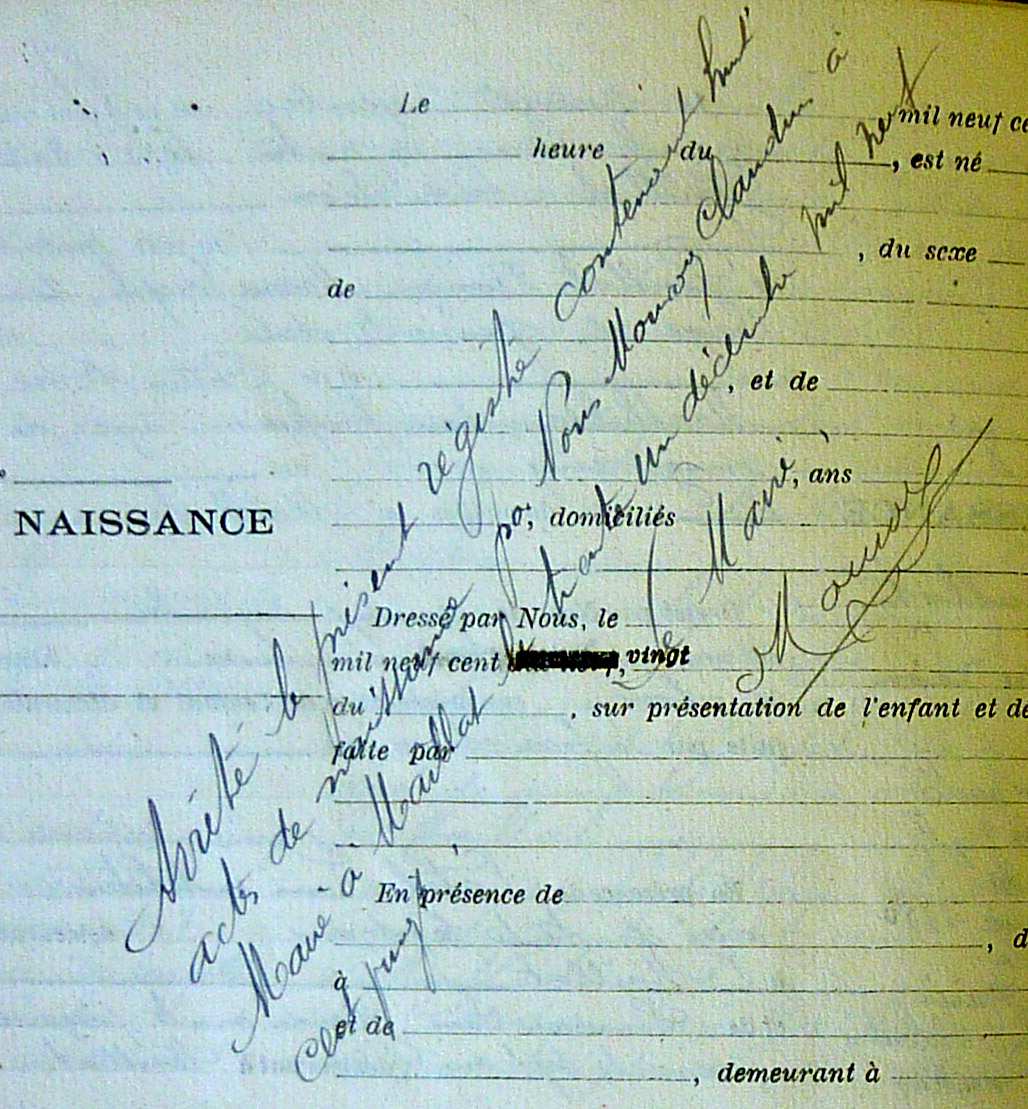 Le
mil neuf ce
heure du , est né
, du sexe
de
, et de
, ans
NAISSANCE
, domiciliés
Dressé par Nous, le
mil neuf cent , vingt
du , sur présentation de l'enfant et de
faite par
En présence de
, d
à
et de
, demeurant à
Arrêté le présent régistre contenant huit
actes de naissance par Nous Mouroy Claudius à
Maire à Maillat le trente un décembre mil neuf
cent vingt
Le Maire,